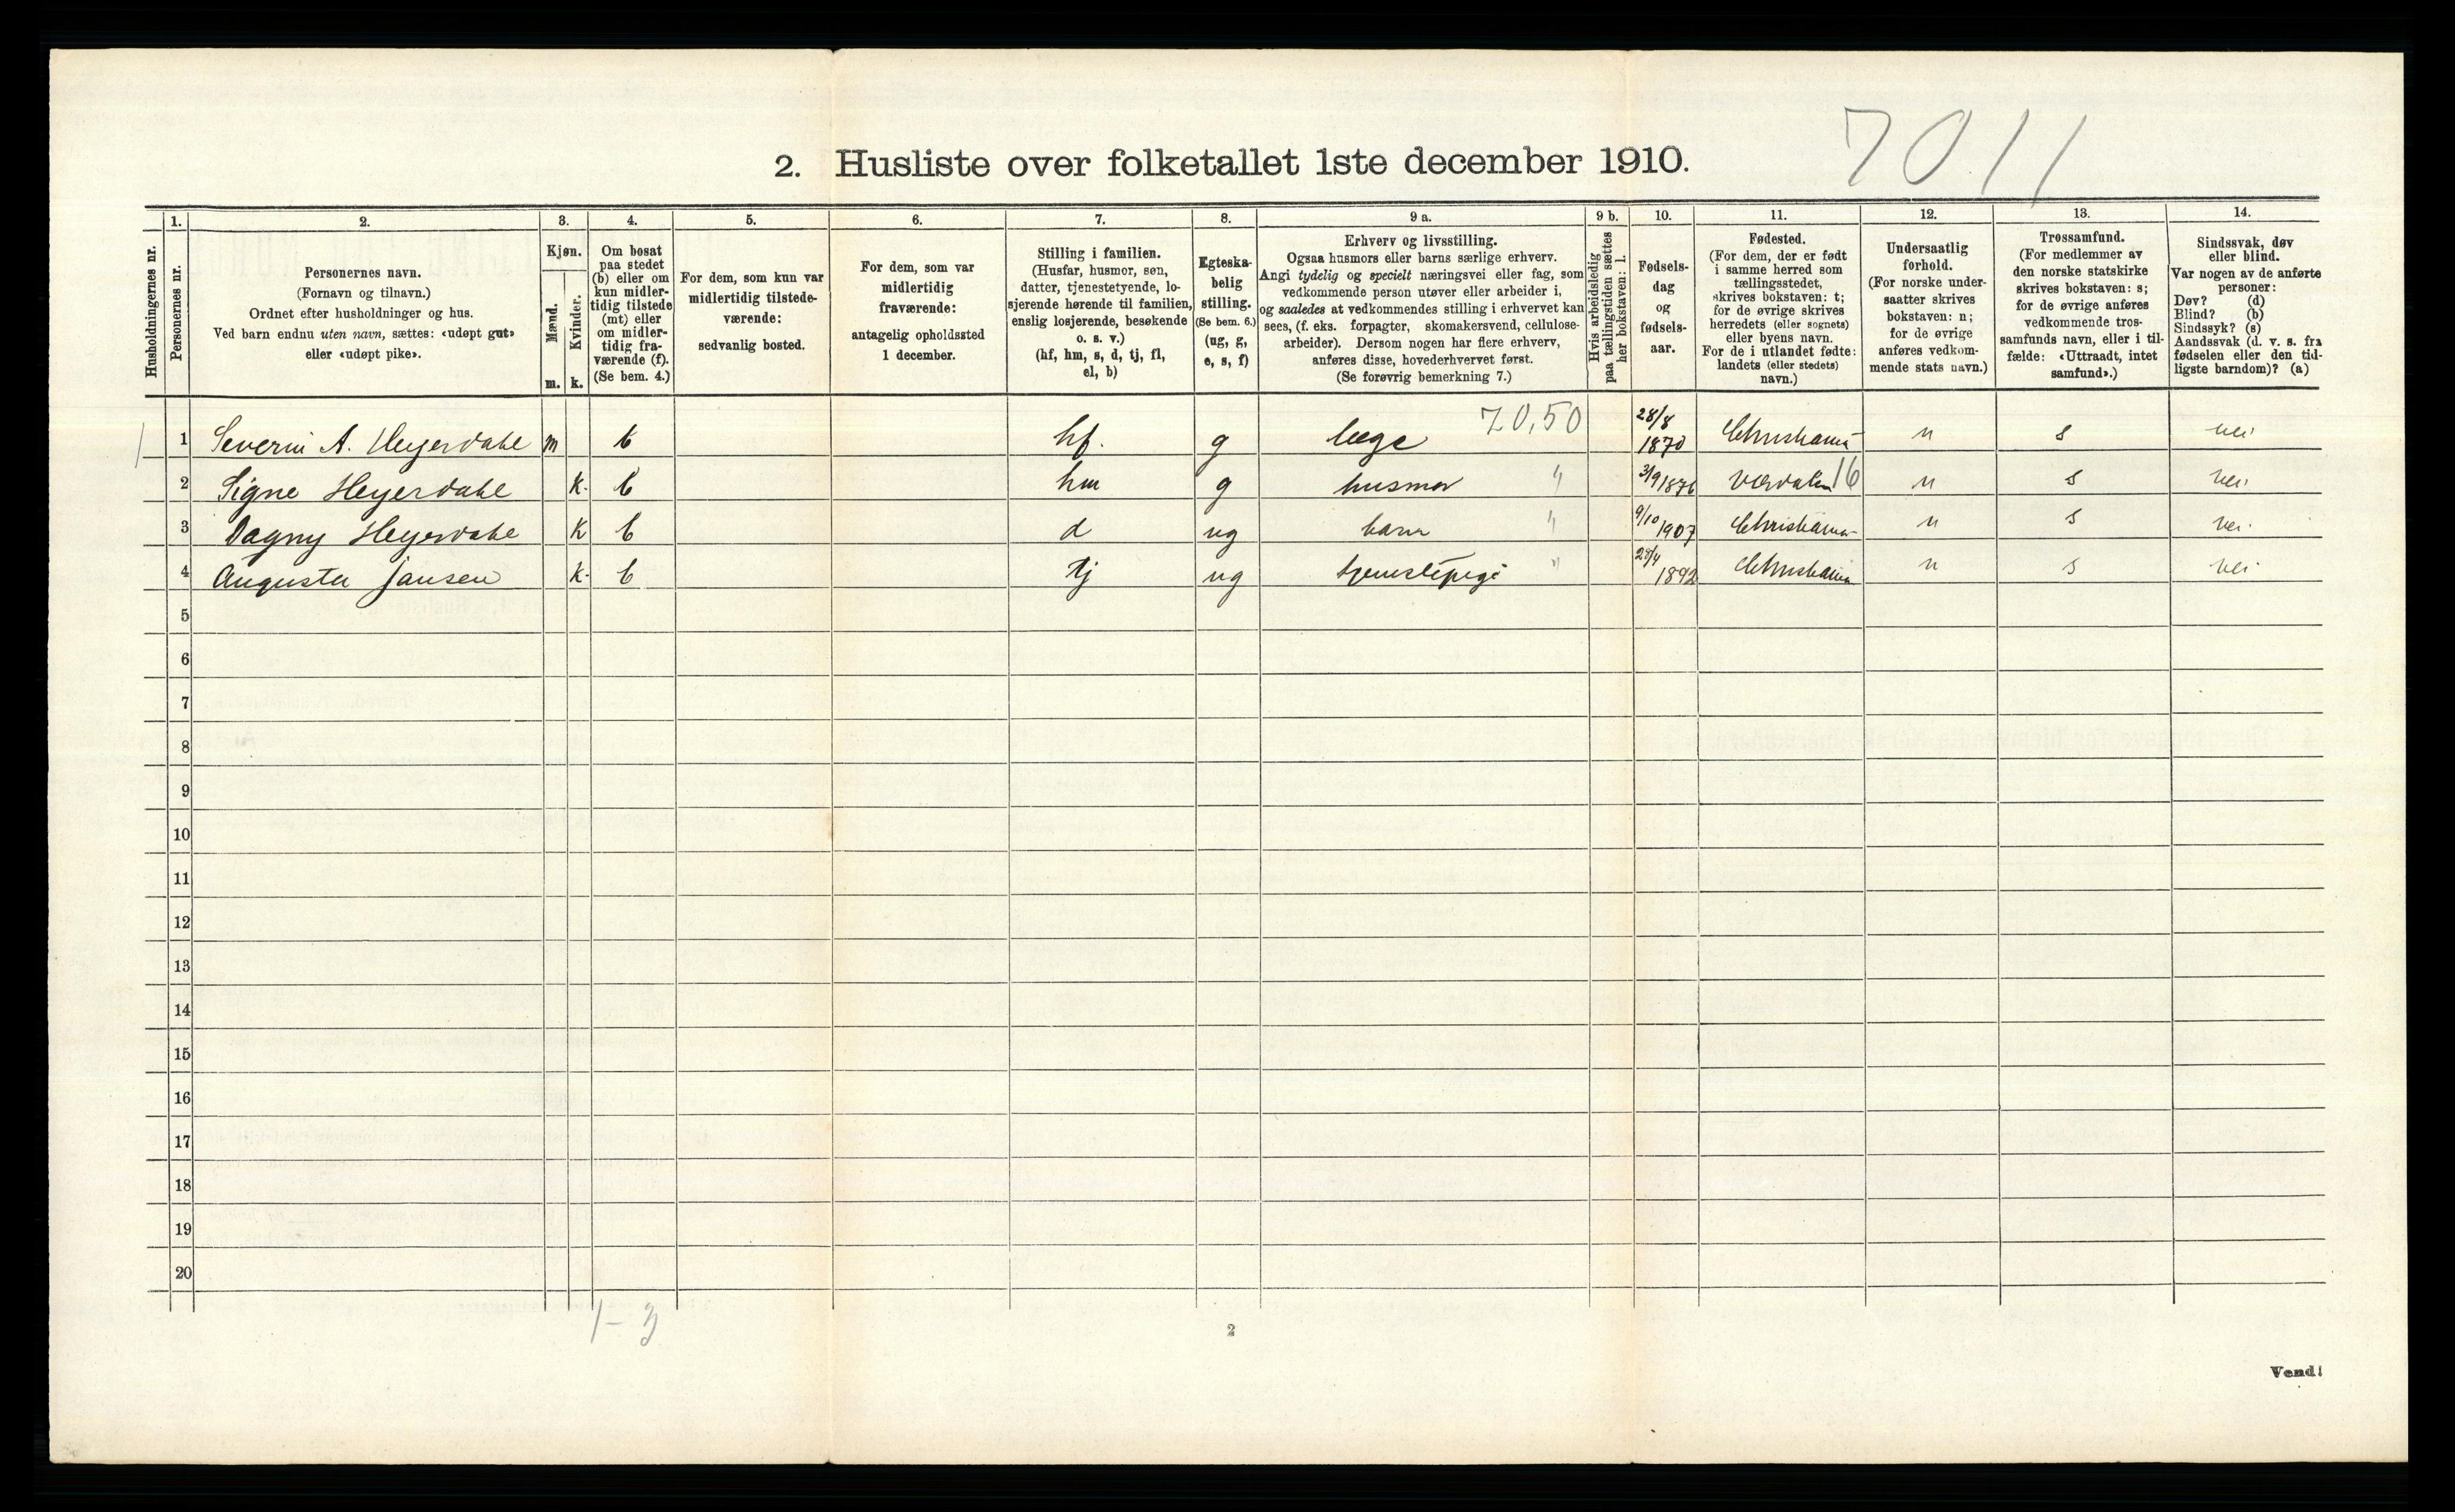 7011
2. Husliste over folketallet 1ste december 1910.
Husholdningernes nr.
1.
Personernes nr.
2.
Personernes navn.
(Fornavn og tilnavn.)
Ordnet efter husholdninger og hus.
Ved barn endnu uten navn, sættes: «udøpt gut»
eller «udøpt pike».
3.
Kjøn.
Mænd.
Kvinder.
m. k.
4.
Om bosat
paa stedet
(b) eller om
kun midler-
tidig tilstede
(mt) eller
om midler-
tidig fra-
værende (f).
(Se bem. 4.)
5.
For dem, som kun var
midlertidig tilstede-
værende:
sedvanlig bosted.
6.
For dem, som var
midlertidig
fraværende:
antagelig opholdssted
1 december.
7.
Stilling i familien.
(Husfar, husmor, søn,
datter, tjenestetyende, lo-
sjerende hørende til familien,
enslig losjerende, besøkende
o. s. v.)
(hf, hm, s, d, tj, fl,
el, b)
8.
Egteska-
belig
stilling.
(Se bem. 6.)
(ug, g,
e, s, f)
9 a.
Erhverv og livsstilling.
Ogsaa husmors eller barns særlige erhverv.
Angi tydelig og specielt næringsvei eller fag, som
vedkommende person utøver eller arbeider i,
og saaledes at vedkommendes stilling i erhvervet kan
sees, (f. eks. forpagter, skomakersvend, cellulose-
arbeider). Dersom nogen har flere erhverv,
anføres disse, hovederhvervet først.
(Se forøvrig bemerkning 7.)
9 b.
Hvis arbeidsledig
paa tællingstiden sættes
her bokstaven: l.
10.
Fødsels-
dag
og
fødsels-
aar.
11.
Fødested.
(For dem, der er født
i samme herred som
tællingsstedet,
skrives bokstaven: t;
for de øvrige skrives
herredets (eller sognets)
eller byens navn.
For de i utlandet fødte:
landets (eller stedets)
navn.)
12.
Undersaatlig
forhold.
(For norske under-
saatter skrives
bokstaven: n;
for de øvrige
anføres vedkom-
mende stats navn.)
13.
Trossamfund.
(For medlemmer av
den norske statskirke
skrives bokstaven: s;
for de øvrige anføres
vedkommende tros-
samfunds navn, eller i til-
fælde: «Uttraadt, intet
samfund».)
14.
Sindssvak, døv
eller blind.
Var nogen av de anførte
personer:
Døv? (d)
Blind? (b)
Sindssyk? (s)
Aandssvak (d. v. s. fra
fødselen eller den tid-
ligste barndom)? (a)
1 1 Severin A. Heyerdahl m b hf. g læge 70,50 28/8 1870 Christiania n s nei
2 Signe Heyerdahl k. b hm g husmor " 3/9 1876 Værdalen 16 n s nei
3 Dagny Heyerdahl k b d ug barn " 9/10 1907 Christiania n s nei
4 Augusta Jansen k. b tj ug tjenestepige " 1892 Christiania n s nei
5
6
7
8
9
10
11
12
13
14
15
16
17
18
19
20
1-3
2
Vend!